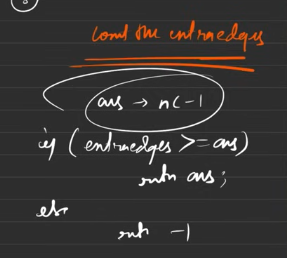 count the extraedges
ans → nc - 1
if ( extraedges >= ans)
return ans;
else
return -1